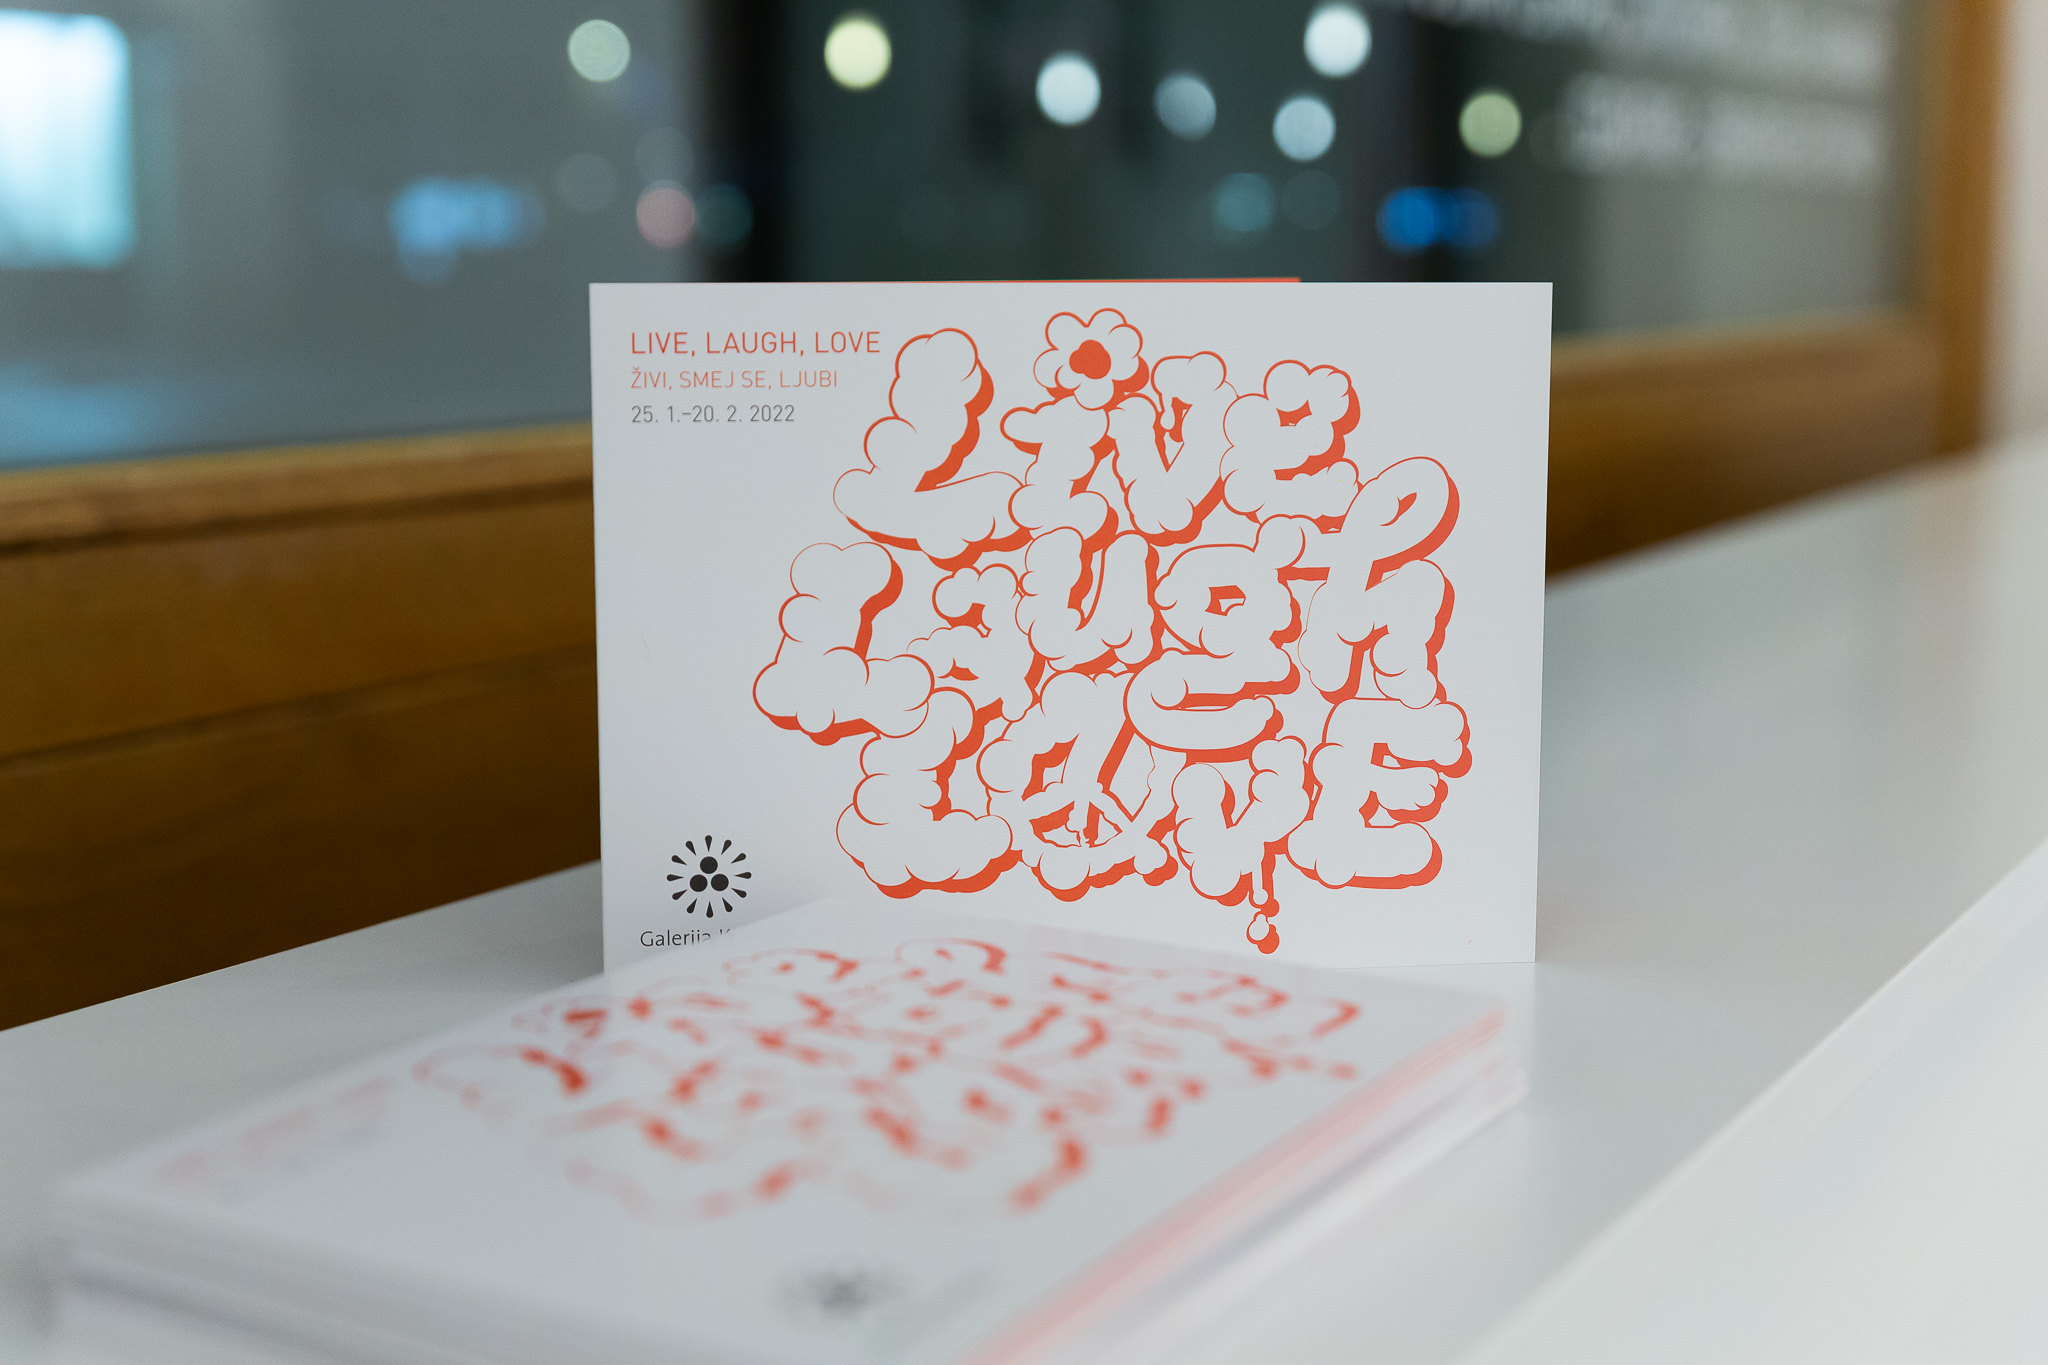 LIVE, LAUGH, LOVE
ŽIVI, SMEJ SE, LJUBI
25. 1.–20. 2. 2022
Live
Laugh
LovE
Galerija